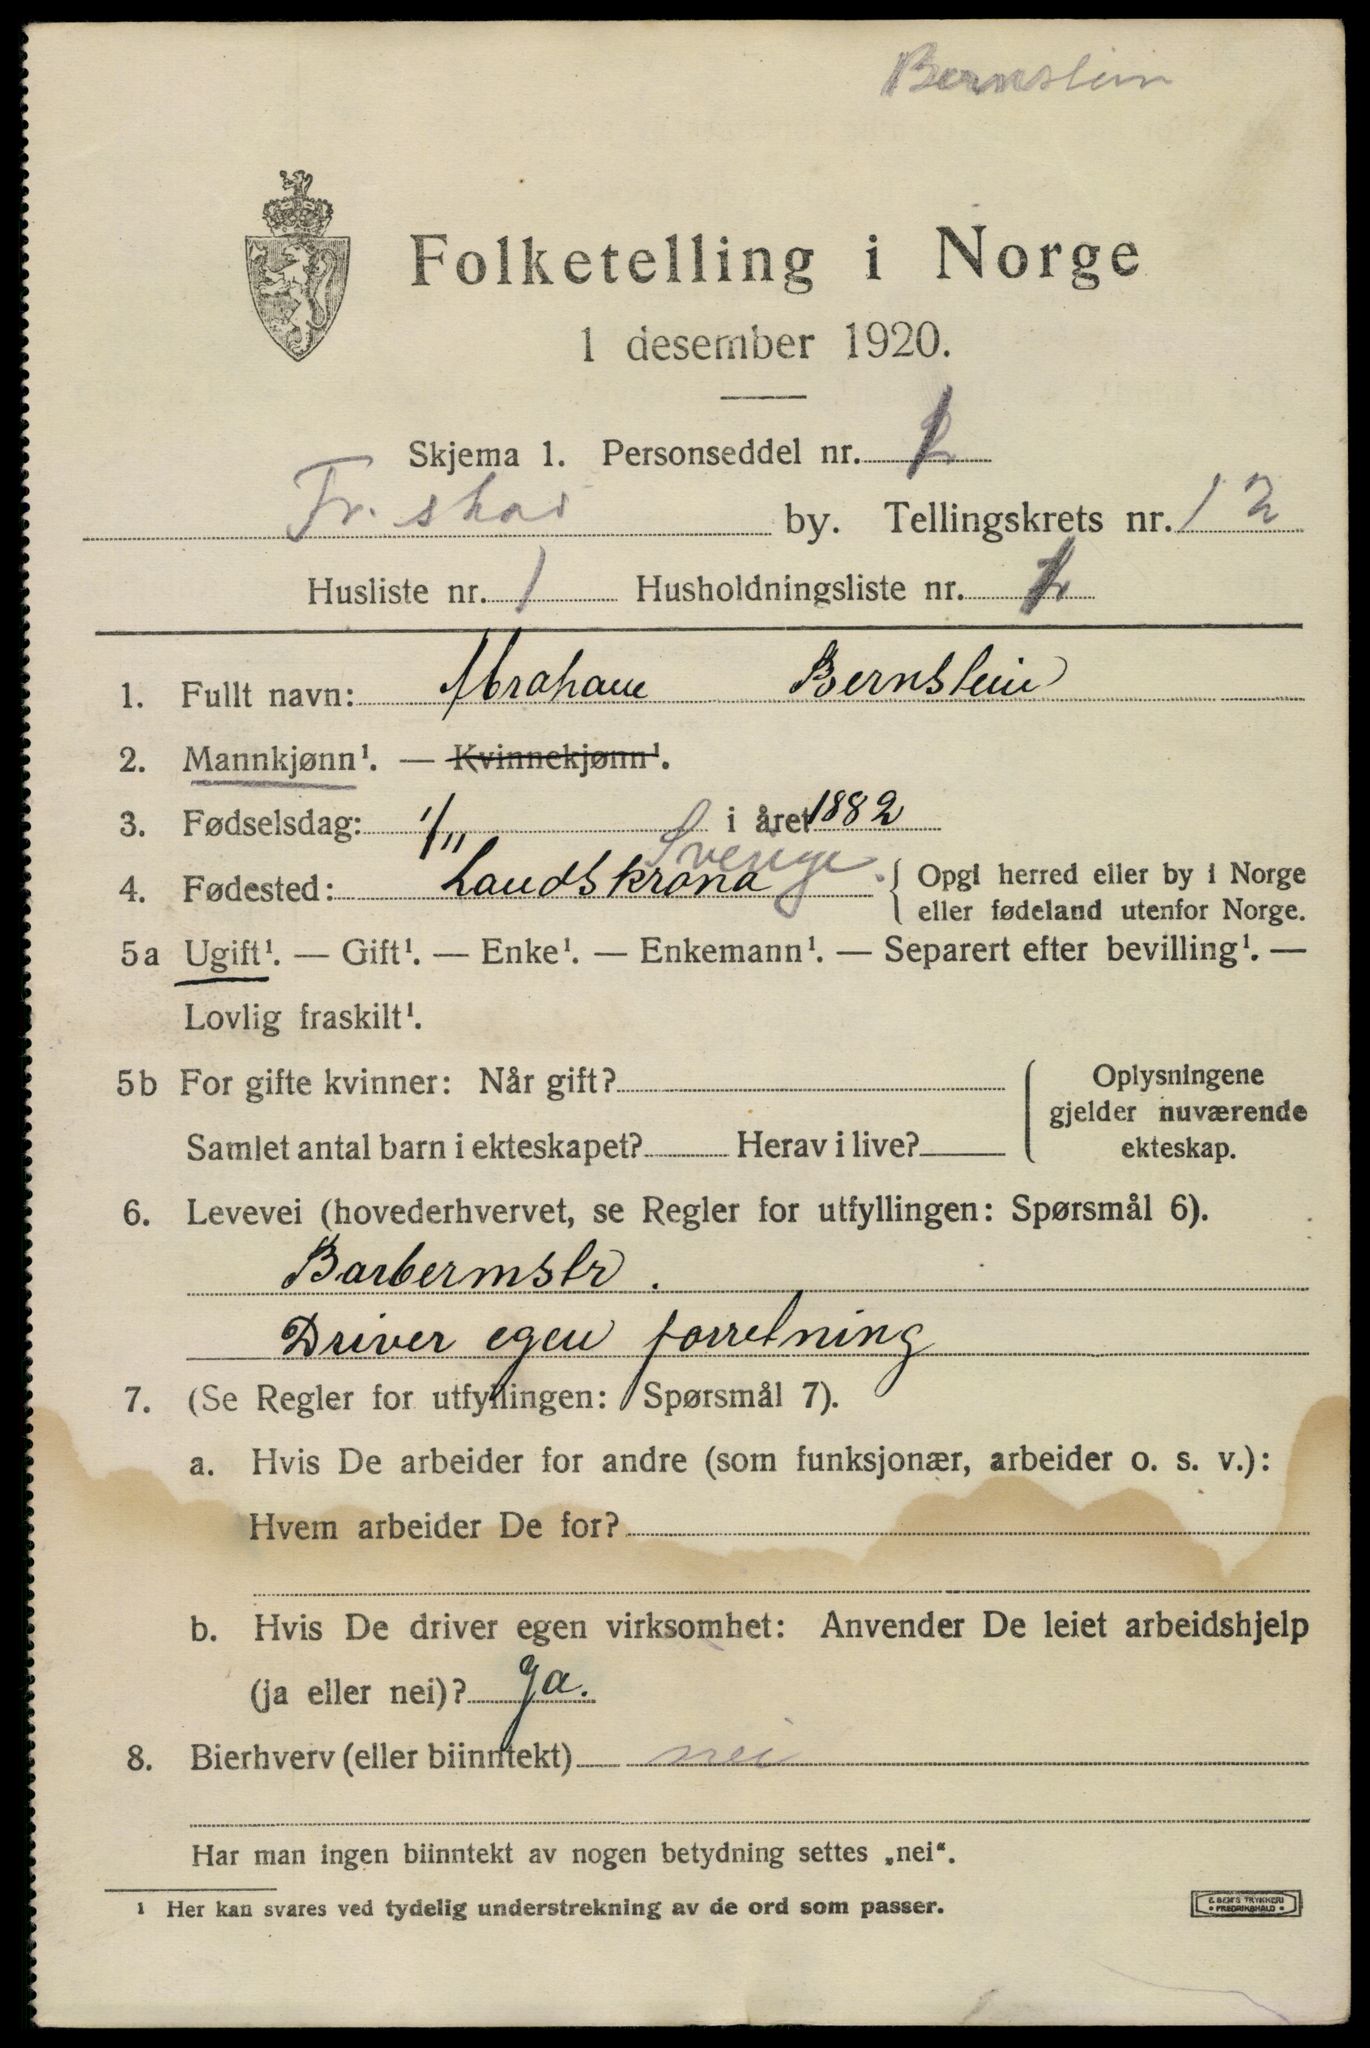 Bernstein
Folketelling i Norge
1 desember 1920.
Skjema 1. Personseddel nr.
Fr. stad by. Tellingskrets nr. 12
Husliste nr. 1 Husholdningsliste nr.
1. Fullt navn: Abraham Bernstein
2. Mannkjønn¹. — Kvinnekjønn¹.
3. Fødselsdag: 1/11 i året 1882
Sverige.
4. Fødested: Landskrona { Opgi herred eller by i Norge
eller fødeland utenfor Norge.
5a Ugift¹. — Gift¹. — Enke¹. — Enkemann¹. — Separert efter bevilling¹. —
Lovlig fraskilt¹.
5b For gifte kvinner: Når gift? { Oplysningene
gjelder nuværende
Samlet antal barn i ekteskapet? Herav i live? ekteskap.
6. Levevei (hovederhvervet, se Regler for utfyllingen: Spørsmål 6).
Barbermstr.
Driver egen forretning
7. (Se Regler for utfyllingen: Spørsmål 7).
a. Hvis De arbeider for andre (som funksjonær, arbeider o. s. v.):
Hvem arbeider De for?
b. Hvis De driver egen virksomhet: Anvender De leiet arbeidshjelp
(ja eller nei)? Ja.
8. Bierhverv (eller biinntekt) nei
Har man ingen biinntekt av nogen betydning settes „nei“.
¹ Her kan svares ved tydelig understrekning av de ord som passer.
E. SEM'S TRYKKERI
• FREDRIKSHALD •